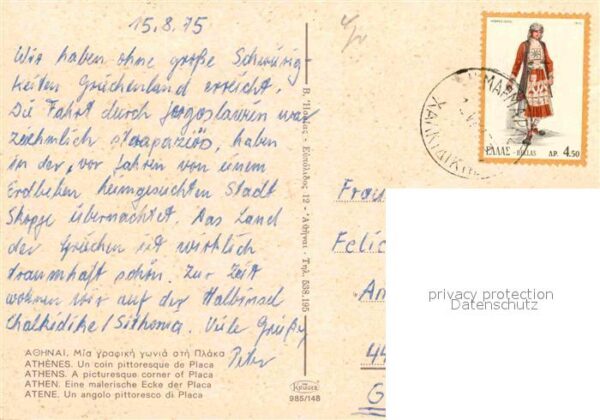 15.8.75
Wir haben ohne große Schwierig-
keiten Griechenland erreicht.
Die Fahrt durch Jogoslawien war
ziehmlich strapaziös, haben
in der, vor Jahren von einem
Erdbeben heimgesuchten Stadt
Skopje übernachtet. Das Land
der Griechen ist wirklich
traumhaft schön. Zur Zeit
wohnen wir auf der Halbinsel
Chalkidike/Sithonia. Viele Grüße
Peter
ΑΘΗΝΑΙ. Μία γραφική γωνιά στή Πλάκα
ATHÈNES. Un coin pittoresque de Placa
ATHENS. A picturesque corner of Placa
ATHEN. Eine malerische Ecke der Placa
ATENE. Un angolo pittoresco di Placa
985/148
12 - Ἀθῆναι - Τηλ. 538.195
ΕΛΛΑΣ - HELLAS ΔΡ. 4.50
Frau
Felic
An
44
G
privacy protection
Datenschutz